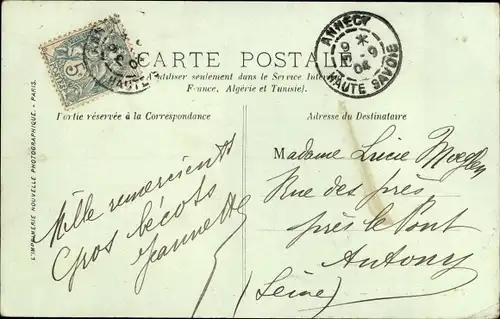 CARTE POSTALE
(A utiliser seulement dans le Service Inter
France, Algérie et Tunisie).
Partie réservée à la Correspondance
Adresse du Destinataire
ANNECY
9
04
HAUTE SAVOIE
5
L'IMPRIMERIE NOUVELLE PHOTOGRAPHIQUE. - PARIS.
Mille remerciements
Gros bécots
Jeannette
Madame Lucie
Rue des près
près le Pont
Antony
(Seine)